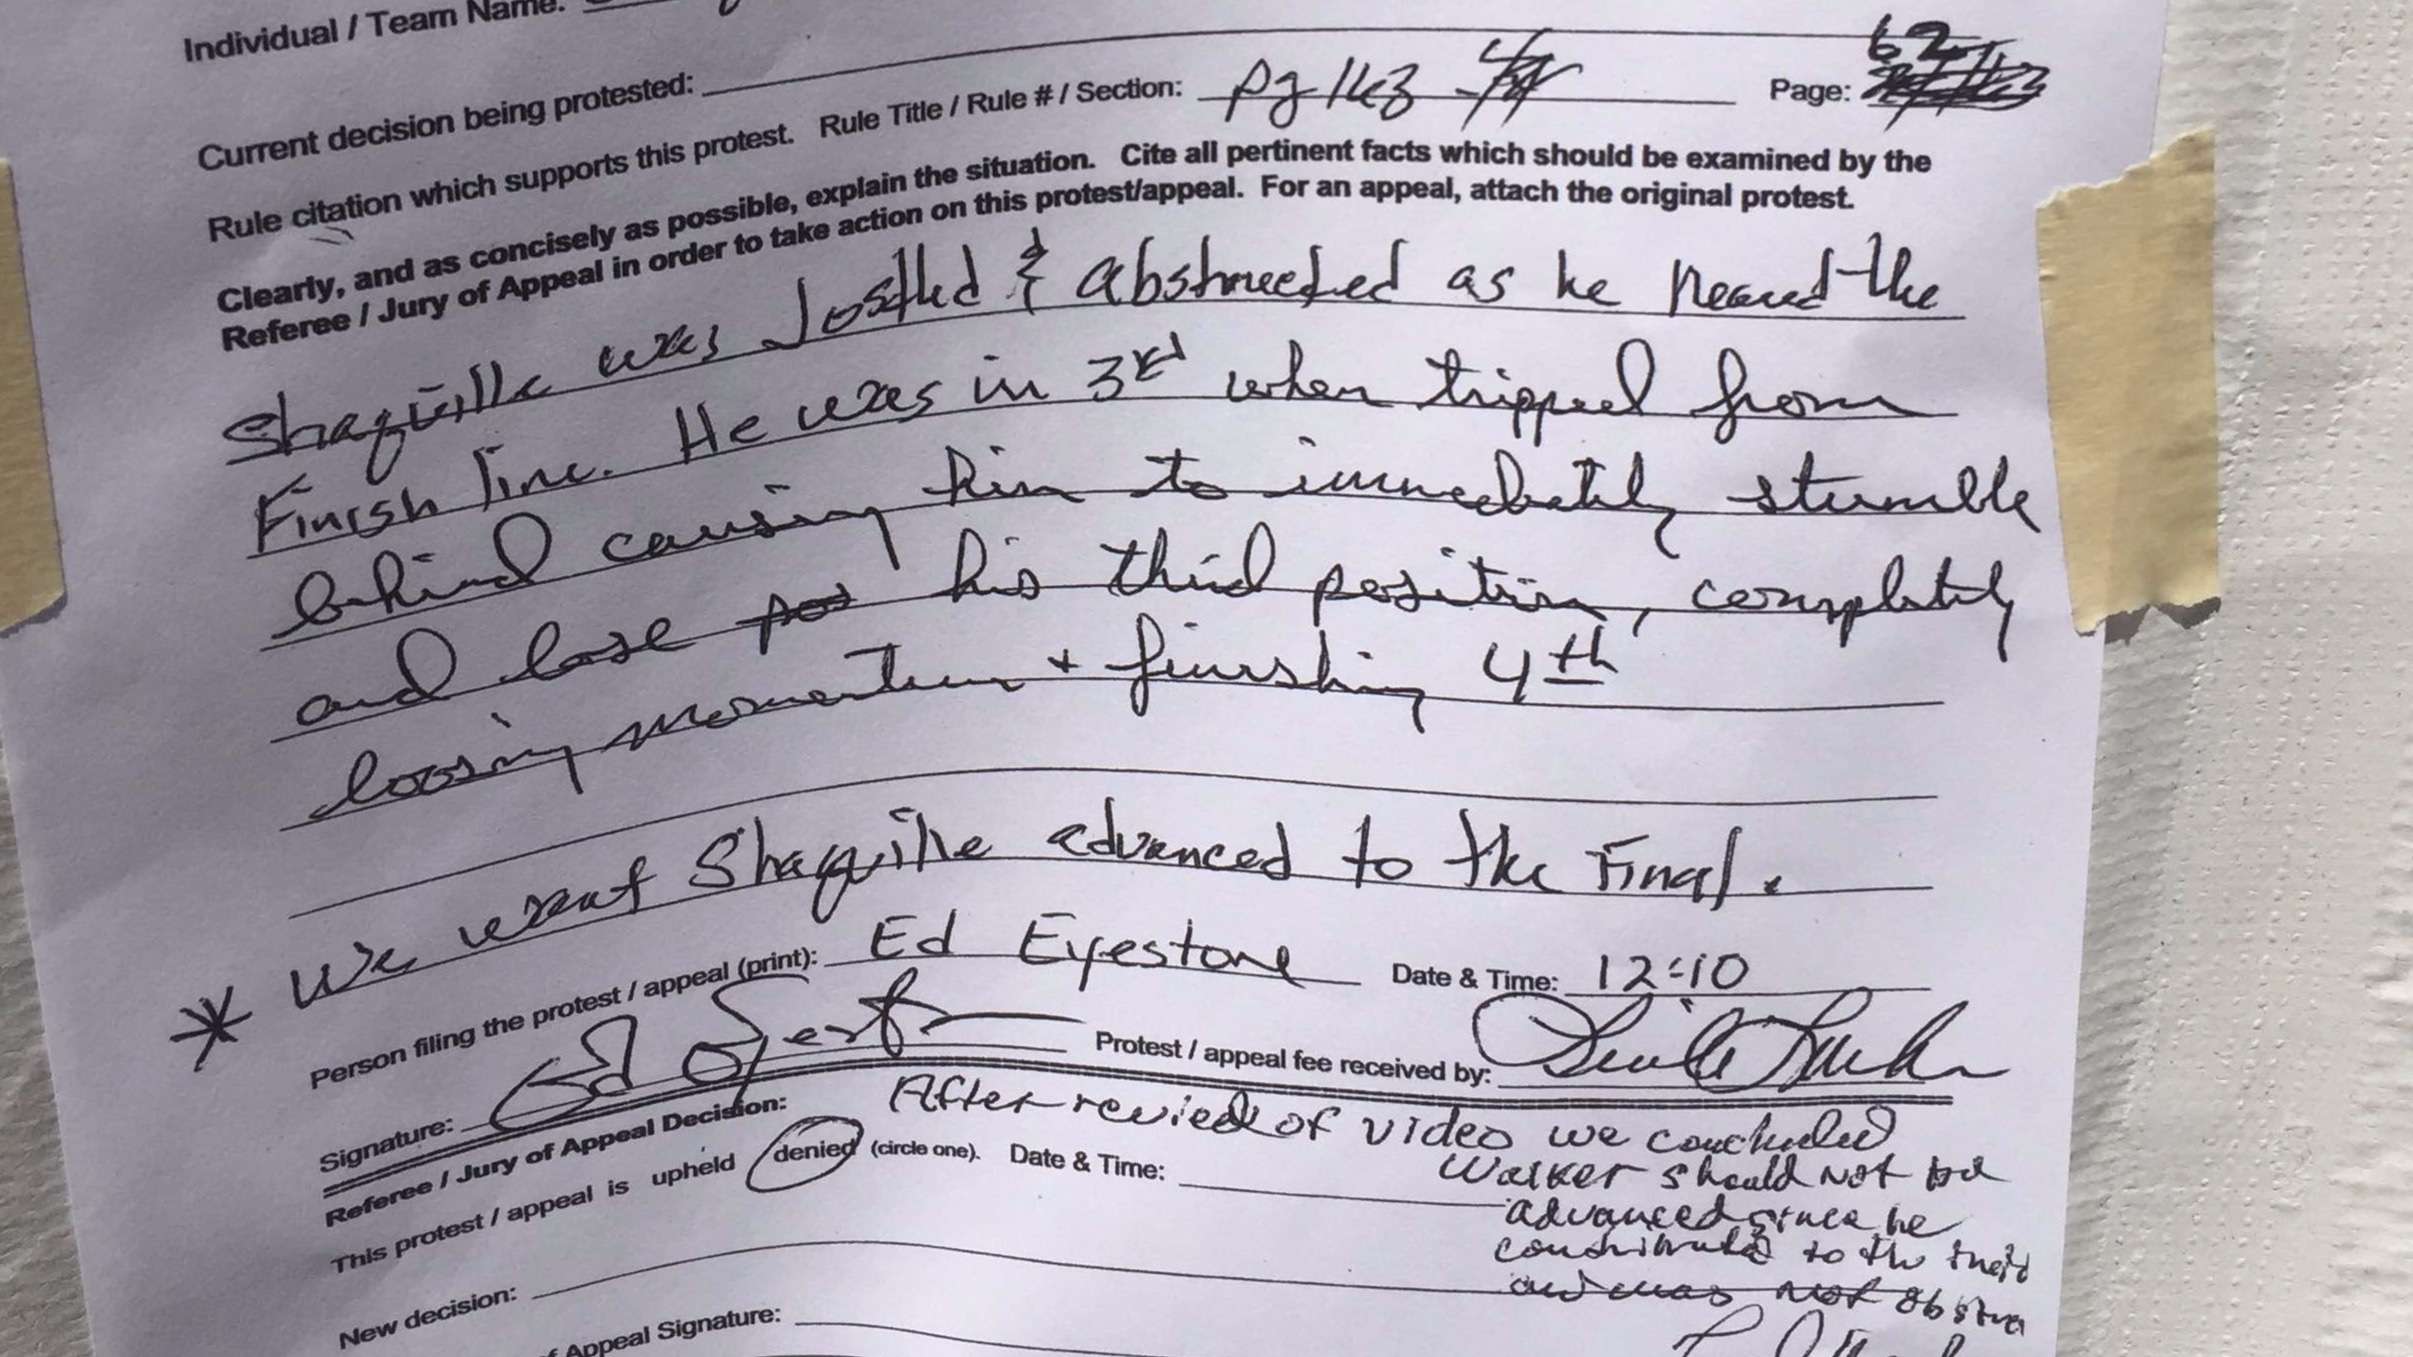 Individual / Team Name:
Current decision being protested:
Rule citation which supports this protest. Rule Title / Rule # / Section: pg 163 Page: 62
Clearly, and as concisely as possible, explain the situation. Cite all pertinent facts which should be examined by the
Referee / Jury of Appeal in order to take action on this protest/appeal. For an appeal, attach the original protest.
Shaquille was Jostled & abstructed as he neared the
Finish line. He was in 3rd when tripped from
behind causing him to immediately stumble
and lose pos his third position, completely
loosing momentum + finishing 4th
* We want Shaquille advanced to the Final.
Person filing the protest / appeal (print): Ed Eyestone Date & Time: 12:10
Signature: Protest / appeal fee received by:
Referee / Jury of Appeal Decision: After review of video we concluded
This protest / appeal is upheld denied (circle one). Date & Time: Walker should not be
advanced since he
contributed to the
New decision: and was not
Appeal Signature: